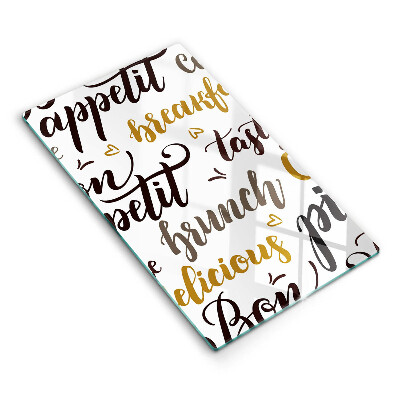 appetit
breakf
tast
petit
brunch
pi
elicious
Bon